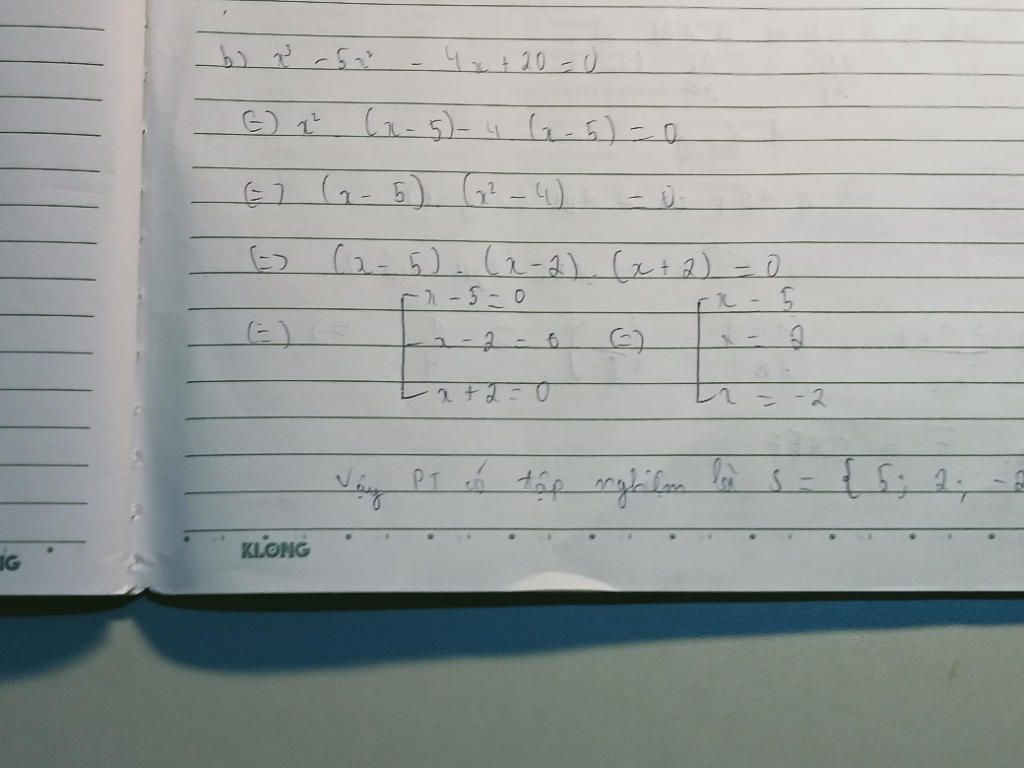 b) x³ - 5x² - 4x + 20 = 0
(=) x² (x - 5) - 4 (x - 5) = 0
(=) (x - 5) (x² - 4) = 0
(=) (x - 5) . (x - 2) . (x + 2) = 0
(=) [ x - 5 = 0 (=) [ x = 5
x - 2 = 0 x = 2
x + 2 = 0 x = -2
Vậy PT có tập nghiệm là S = { 5; 2; -2
KLONG
NG